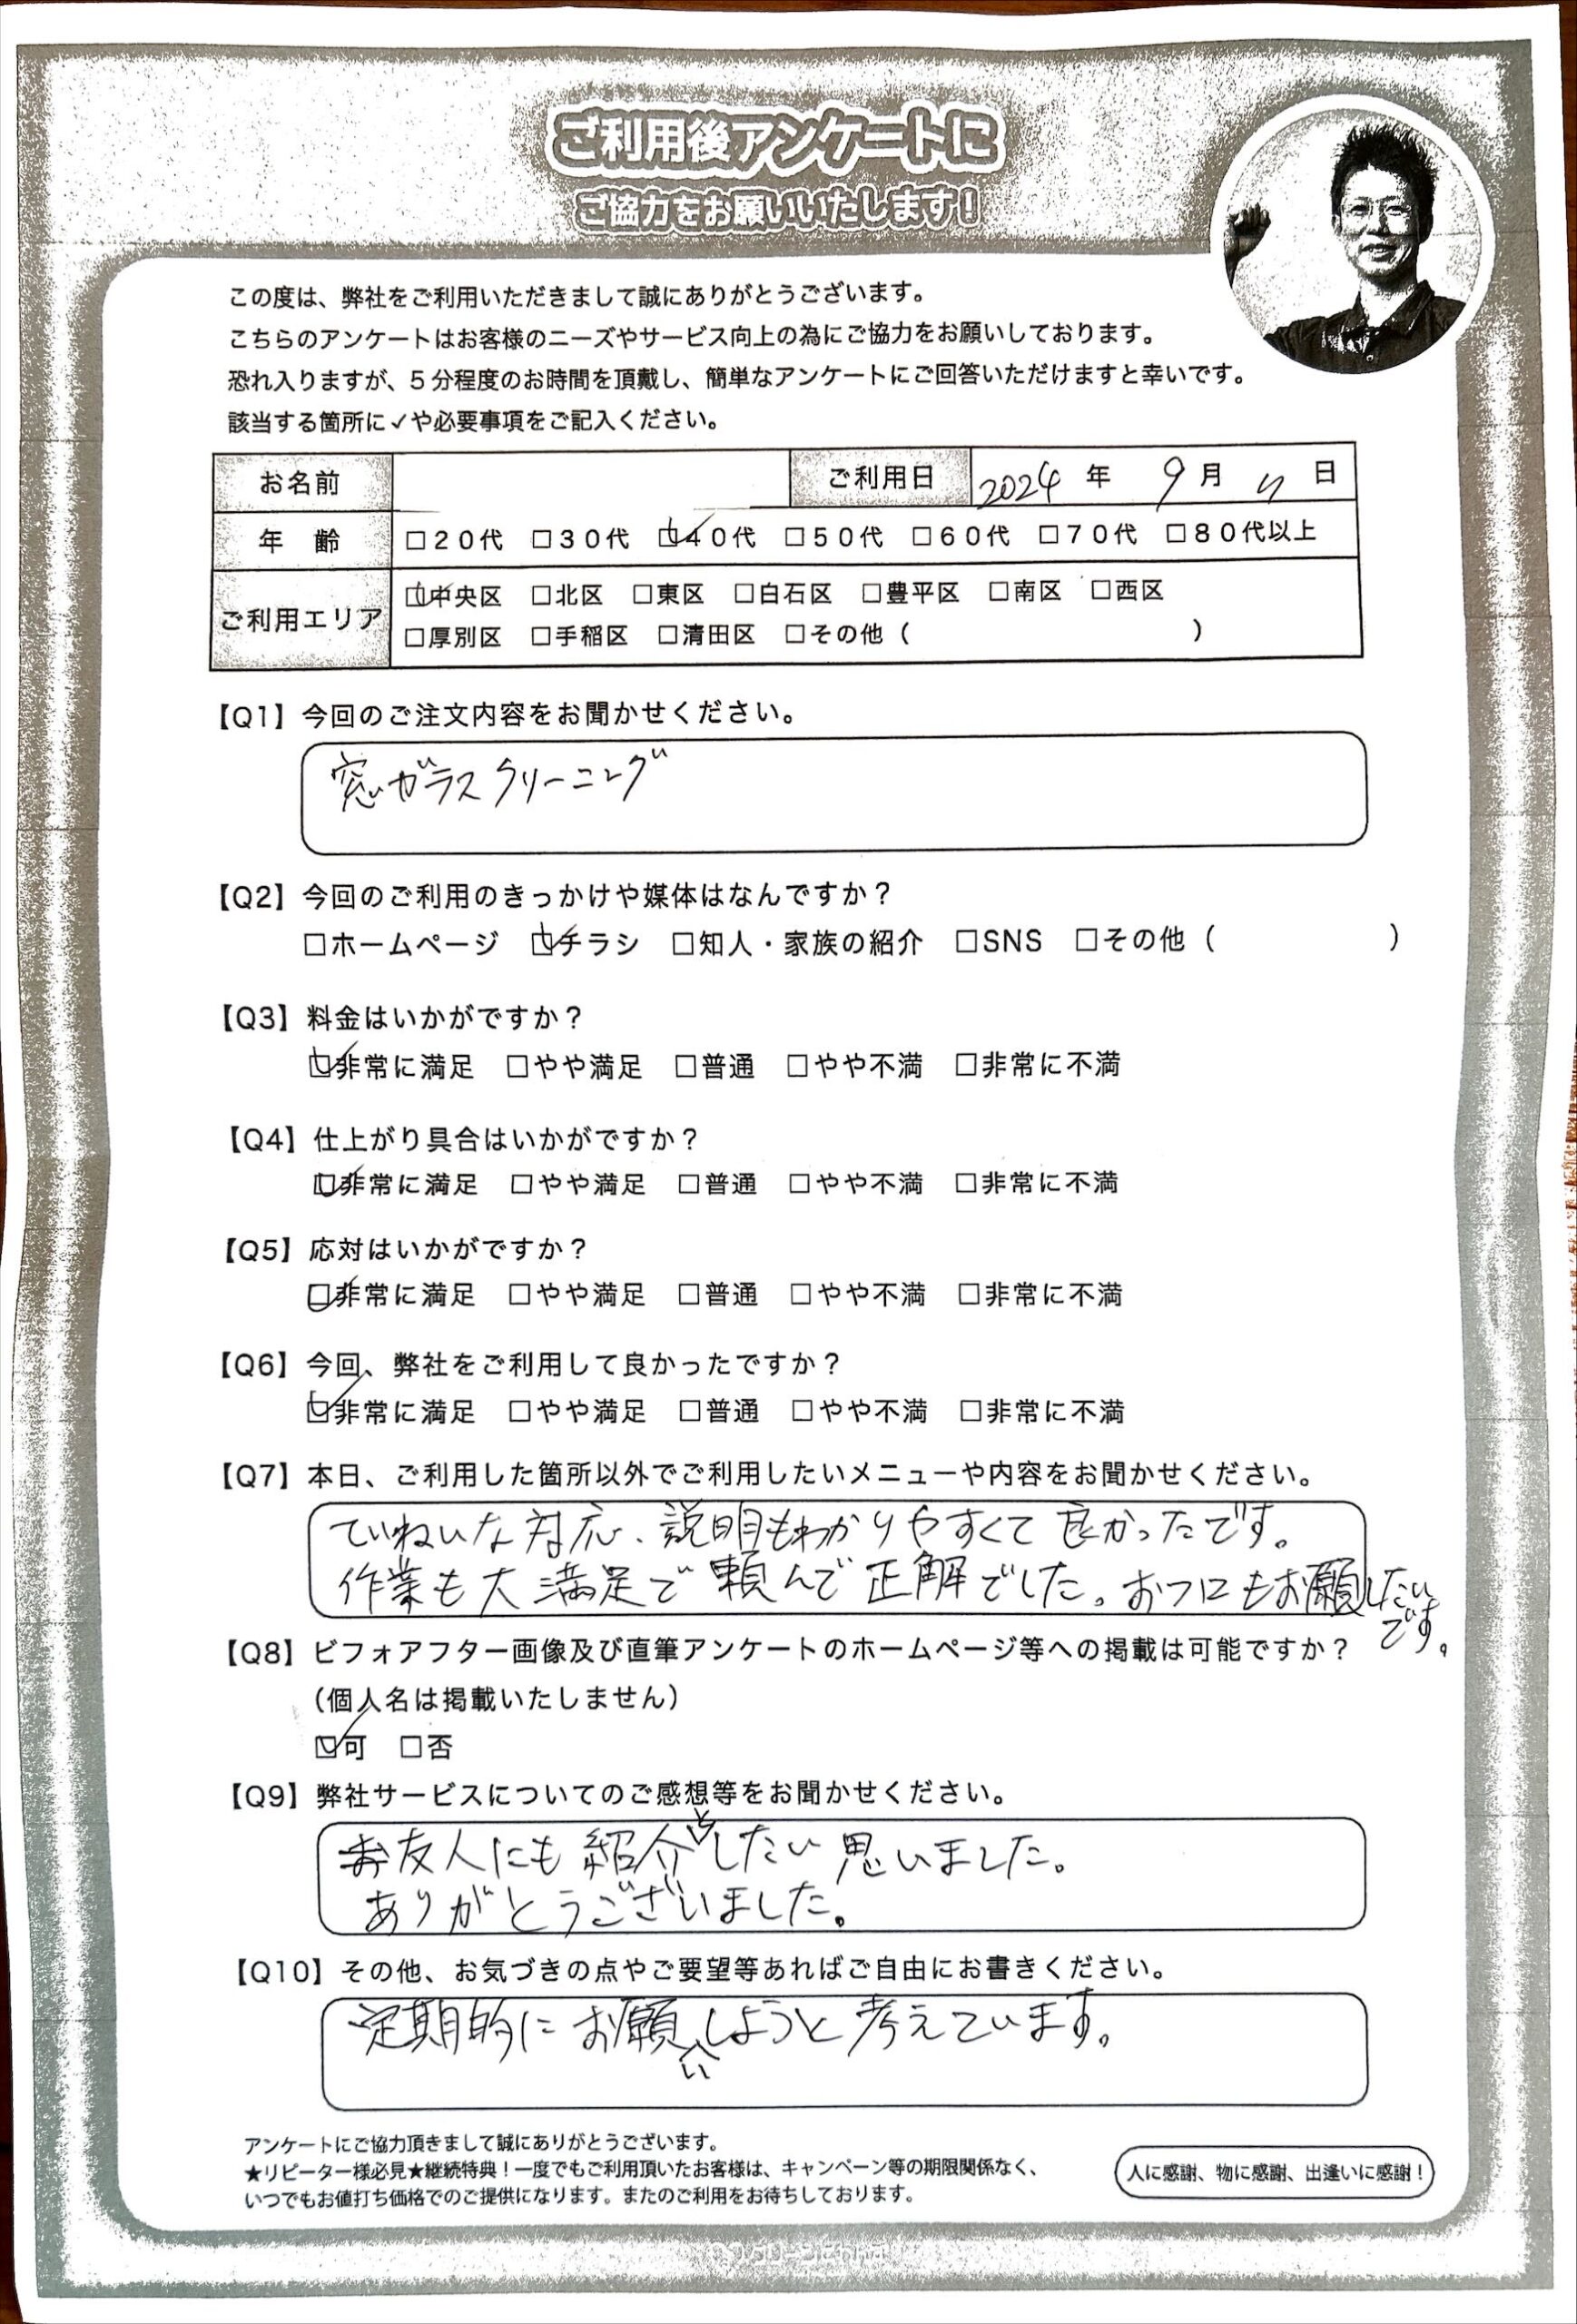 ご利用後アンケートに
ご協力をお願いいたします！
この度は、弊社をご利用いただきまして誠にありがとうございます。
こちらのアンケートはお客様のニーズやサービス向上の為にご協力をお願いしております。
恐れ入りますが、５分程度のお時間を頂戴し、簡単なアンケートにご回答いただけますと幸いです。
該当する箇所に✓や必要事項をご記入ください。
お名前 ご利用日 2024 年 9 月 日
年 齢 □20代 □30代 ☑40代 □50代 □60代 □70代 □80代以上
ご利用エリア ☑中央区 □北区 □東区 □白石区 □豊平区 □南区 □西区
□厚別区 □手稲区 □清田区 □その他（ ）
【Q1】今回のご注文内容をお聞かせください。
窓ガラスクリーニング
【Q2】今回のご利用のきっかけや媒体はなんですか？
□ホームページ ☑チラシ □知人・家族の紹介 □SNS □その他（ ）
【Q3】料金はいかがですか？
☑非常に満足 □やや満足 □普通 □やや不満 □非常に不満
【Q4】仕上がり具合はいかがですか？
☑非常に満足 □やや満足 □普通 □やや不満 □非常に不満
【Q5】応対はいかがですか？
☑非常に満足 □やや満足 □普通 □やや不満 □非常に不満
【Q6】今回、弊社をご利用して良かったですか？
☑非常に満足 □やや満足 □普通 □やや不満 □非常に不満
【Q7】本日、ご利用した箇所以外でご利用したいメニューや内容をお聞かせください。
ていねいな対応、説明もわかりやすくて良かったです。
作業も大満足で頼んで正解でした。おフロもお願したい
です。
【Q8】ビフォアフター画像及び直筆アンケートのホームページ等への掲載は可能ですか？
（個人名は掲載いたしません）
☑可 □否
【Q9】弊社サービスについてのご感想等をお聞かせください。
友人にも紹介したいと思いました。
ありがとうございました。
【Q10】その他、お気づきの点やご要望等あればご自由にお書きください。
定期的にお願いしようと考えています。
アンケートにご協力頂きまして誠にありがとうございます。
★リピーター様必見★継続特典！一度でもご利用頂いたお客様は、キャンペーン等の期限関係なく、
いつでもお値打ち価格でのご提供になります。またのご利用をお待ちしております。
人に感謝、物に感謝、出逢いに感謝！